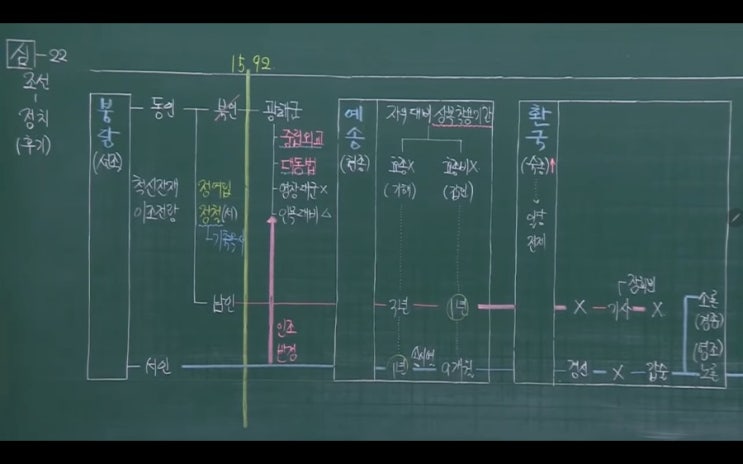 심-22
조선
정치
(후기)
15.92
붕당
(선조)
동인
북인
광해군
중립외교
대동법
영창대군 X
인목대비 △
척신잔재
이조전랑
정여립
정철(서)
기축옥사
남인
서인
인조
반정
예송
(현종)
자의대비 상복착용기간
효종X
(기해)
효종비X
(갑인)
3년
1년
1년
9개월
환국
(숙종)↑
일당
전제
X
기사
X
장희빈
경신
X
갑술
소론
(경종)
(영조)
노론